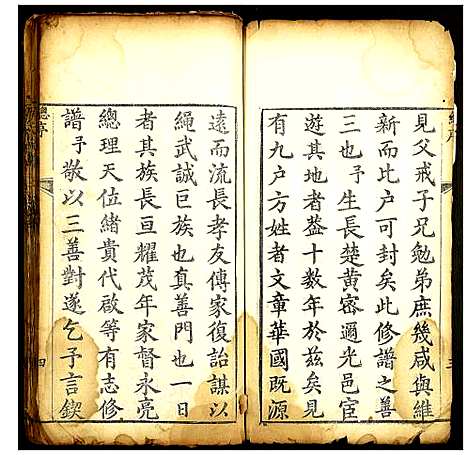 見父戒子兄勉弟庶幾咸與維
新而比户可封矣此修譜之善
三也予生長楚黄密邇光邑宦
遊其地者蓋十數年於茲矣見
有九户方姓者文章華國既源
遠而流長孝友傳家復詒謀以
繩武誠巨族也真善門也一日
者其族長亘耀茂年家督永亮
總理天位緒貴代啟等有志修
譜予敬以三善對遂乞予言鍥
總序
四